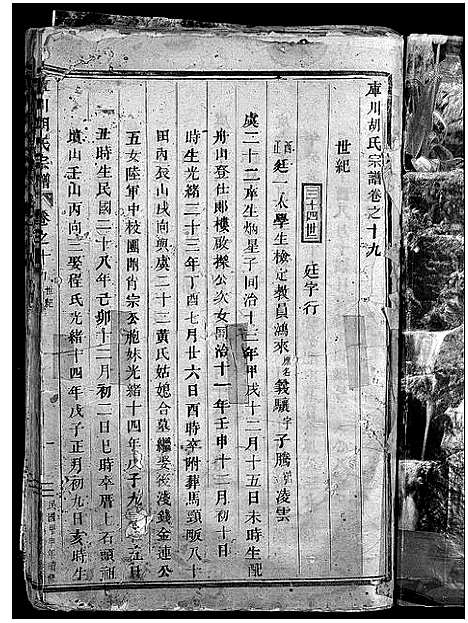 庫川胡氏宗譜卷之十九
世紀
三十四世 廷字行
酉正廷一太學生檢定教員鴻來應名義驤字子騰號凌雲
虞二十二庠生炳星子同治十三年甲戌十二月十五日未時生配
舟山登仕郎樓啟操公次女同治十一年壬申十二月初十日
時生光緒三十三年丁酉七月廿六日酉時卒附葬馬頸畈八十
田內辰山戌向與虞二十二黃氏姑媳合墓繼娶後淺錢金連公
五女陸軍中校團附宗公胞妹光緒十四年戊子九
丑時生民國二十八年己卯十二月初二日巳時卒厝上石頭
墳山壬山丙向三娶程氏光緒十四年戊子正月初九日亥時生
庫川胡氏宗譜 卷之十九 世紀 一